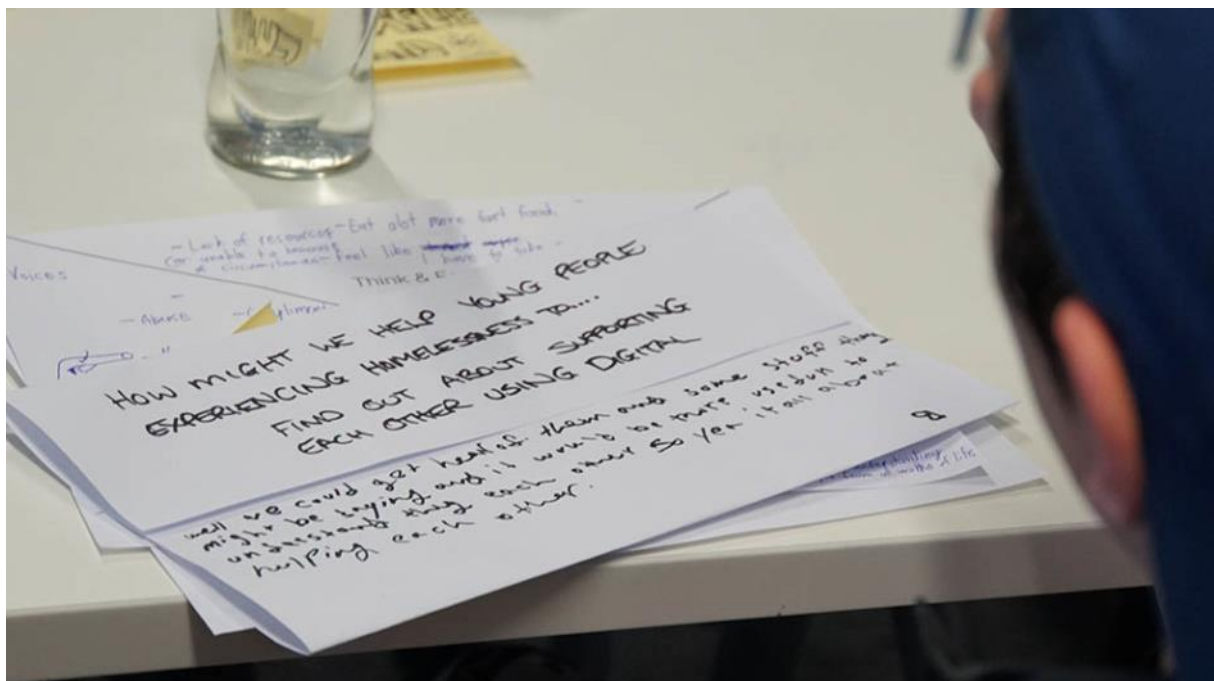 - Lack of resources - Eat alot more fast food,
or unable to because
of circumstances - Feel like I have to
Voices
Think &
- Abuse
HOW MIGHT WE HELP YOUNG PEOPLE
EXPERIENCING HOMELESSNESS TO....
FIND OUT ABOUT SUPPORTING
EACH OTHER USING DIGITAL
well we could get of them and some stuff they
might be saying and it would be more use to
understand thing each other So yer it all about
helping each other.
8
of life